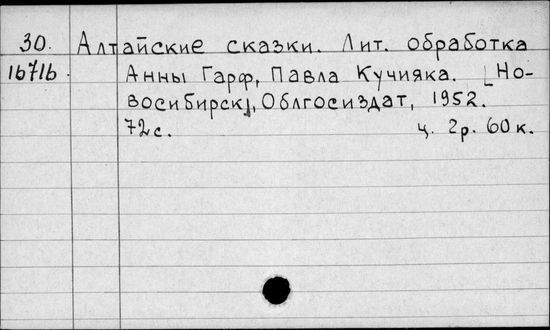 30. Алтайские сказки. Лит. обработка
16716 Анны Гарф, Павла Кучияка. [Но-
восибирск], Облгосиздат, 1952.
72с. ц. 2р. 60к.